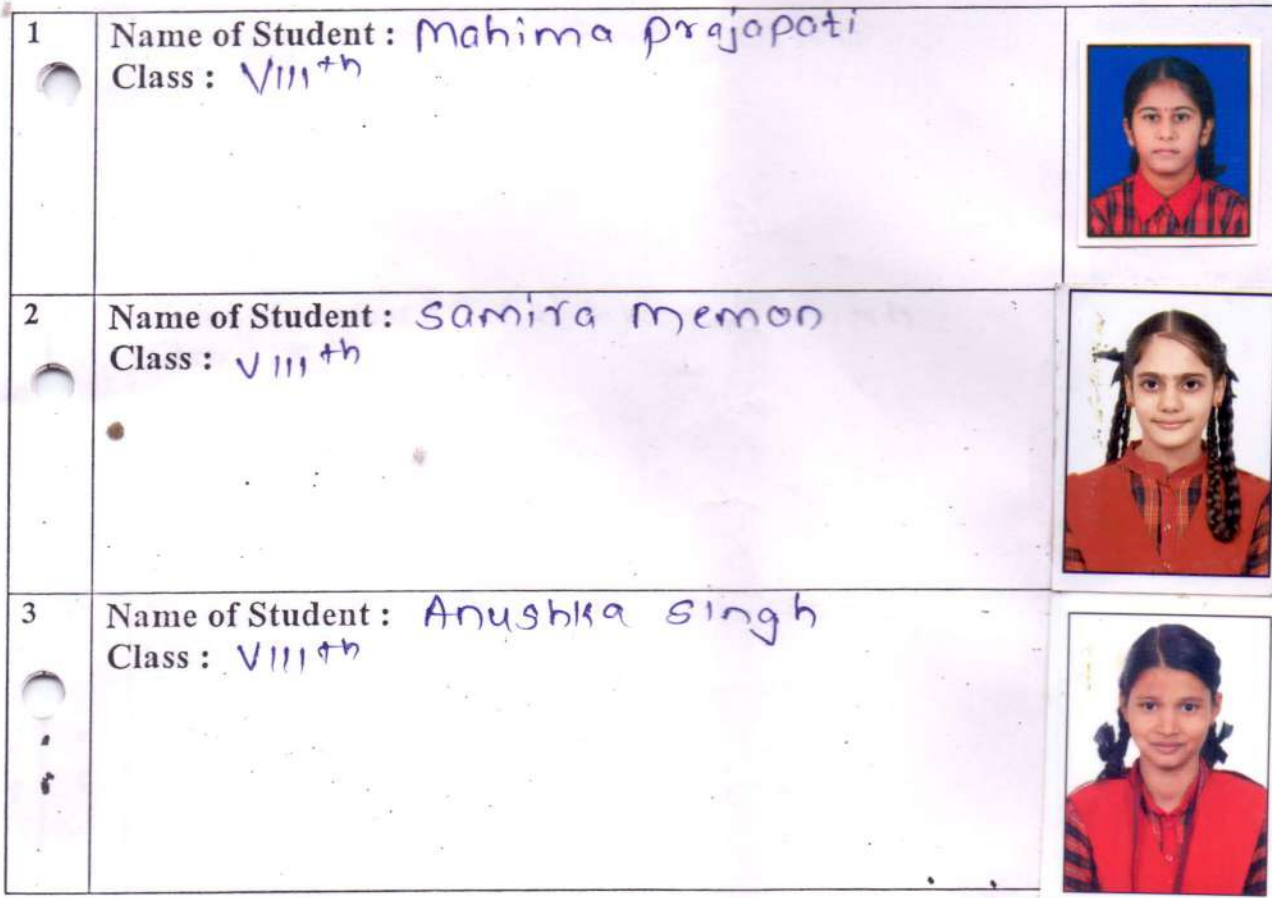 1
Name of Student : Mahima Prajapati
Class : VIIIth
2
Name of Student : Samira Memon
Class : VIIIth
3
Name of Student : Anushka Singh
Class : VIIIth